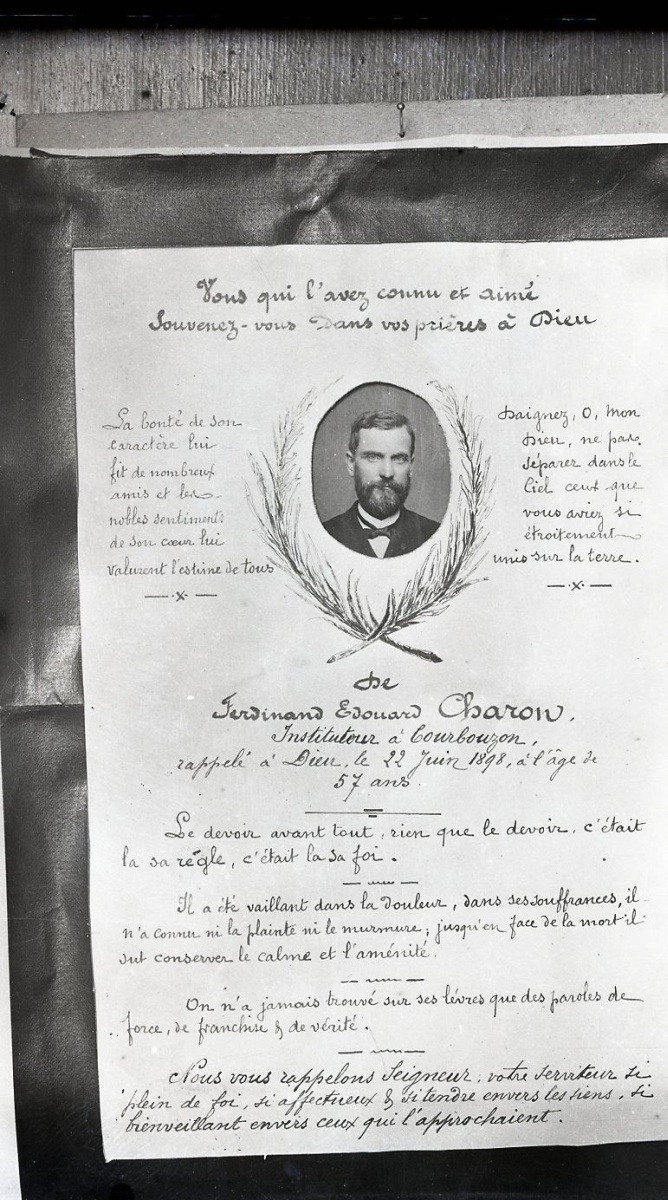 Vous qui l'avez connu et aimé
Souvenez-vous Dans vos prières à Dieu
La bonté de son
caractère lui
fit de nombreux
amis et les
nobles sentiments
de son cœur lui
valurent l'estime de tous
Daignez, O, Mon
Dieu, ne pas
séparer dans le
Ciel ceux que
vous aviez si
étroitement
unis sur la terre.
De
Ferdinand Edouard Charon,
Instituteur à Courbouzon,
rappelé à Dieu, le 22 Juin 1898, à l'âge de
57 ans.
Le devoir avant tout, rien que le devoir, c'était
la sa règle, c'était la sa foi.
Il a été vaillant dans la douleur, dans ses souffrances, il
n'a connu ni la plainte ni le murmure; jusqu'en face de la mort il
sut conserver le calme et l'aménité.
On n'a jamais trouvé sur ses lèvres que des paroles de
force, de franchise & de vérité.
Nous vous rappelons Seigneur, votre serviteur si
plein de foi, si affectueux & si tendre envers les siens, si
bienveillant envers ceux qui l'approchaient.